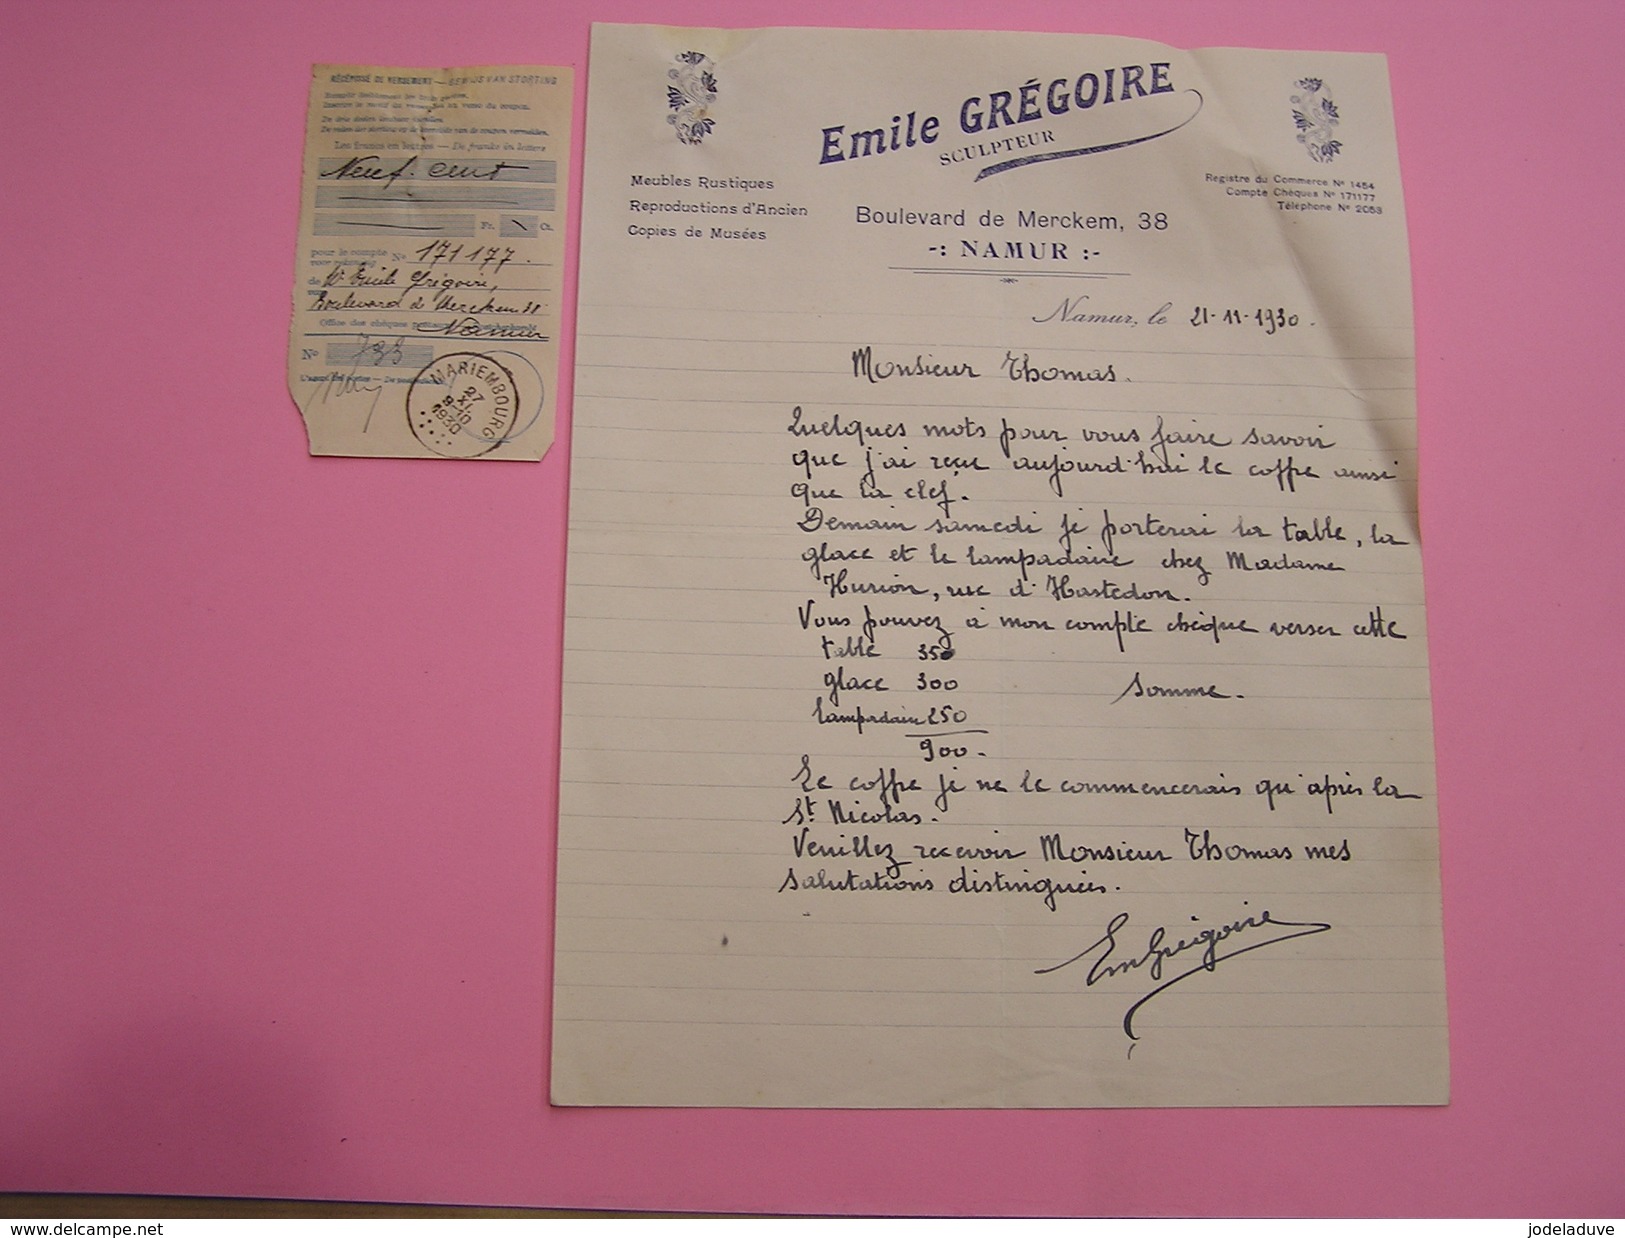 RÉCÉPISSÉ DE VERSEMENT — BEWIJS VAN STORTING
Inscrire le motif du versement au verso du coupon.
Les francs en lettres — De franks in letters
Neuf. cent
Fr. Ct.
pour le compte
voor rekening No 171177.
de Mr Emile Grégoire,
voor
Boulevard de Merckem 38
Office des chèques postaux
Namur
No 733
MARIEMBOURG
27
XI
9-10
1930
Emile GRÉGOIRE
SCULPTEUR
Meubles Rustiques
Reproductions d'Ancien
Copies de Musées
Registre du Commerce No 1454
Compte Chèques No 171177
Téléphone No 2053
Boulevard de Merckem, 38
-: NAMUR :-
Namur, le 21-11-1930.
Monsieur Thomas.
Quelques mots pour vous faire savoir
que j'ai reçue aujourd'hui le coffre ainsi
que la clef.
Demain samedi je porterai la table, la
glace et le lampadaire chez Madame
Hurion, rue d'Hastedon.
Vous pouvez à mon compte chèque verser cette
table 350
glace 300 somme.
lampadaire 250
900.
Le coffre je ne le commencerais qu'après la
St Nicolas.
Veuillez recevoir Monsieur Thomas mes
salutations distinguées.
Em Grégoire
www.delcampe.net
jodeladuve